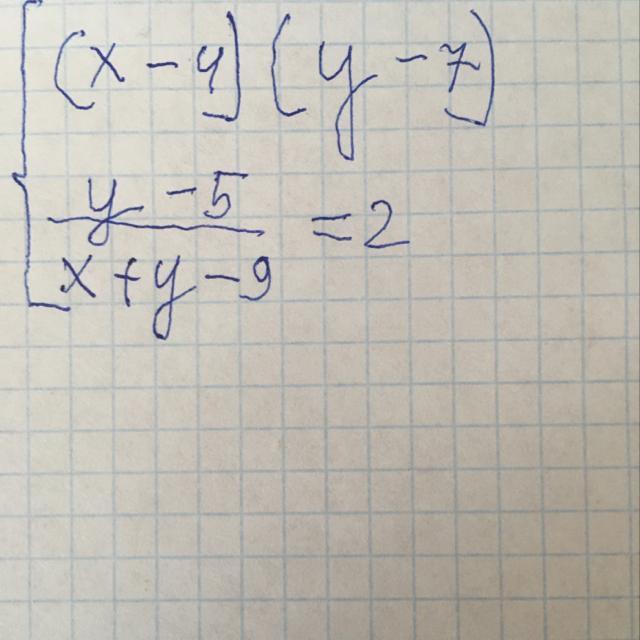 (x - 4)(y - 7)
y - 5
x + y - 9
= 2